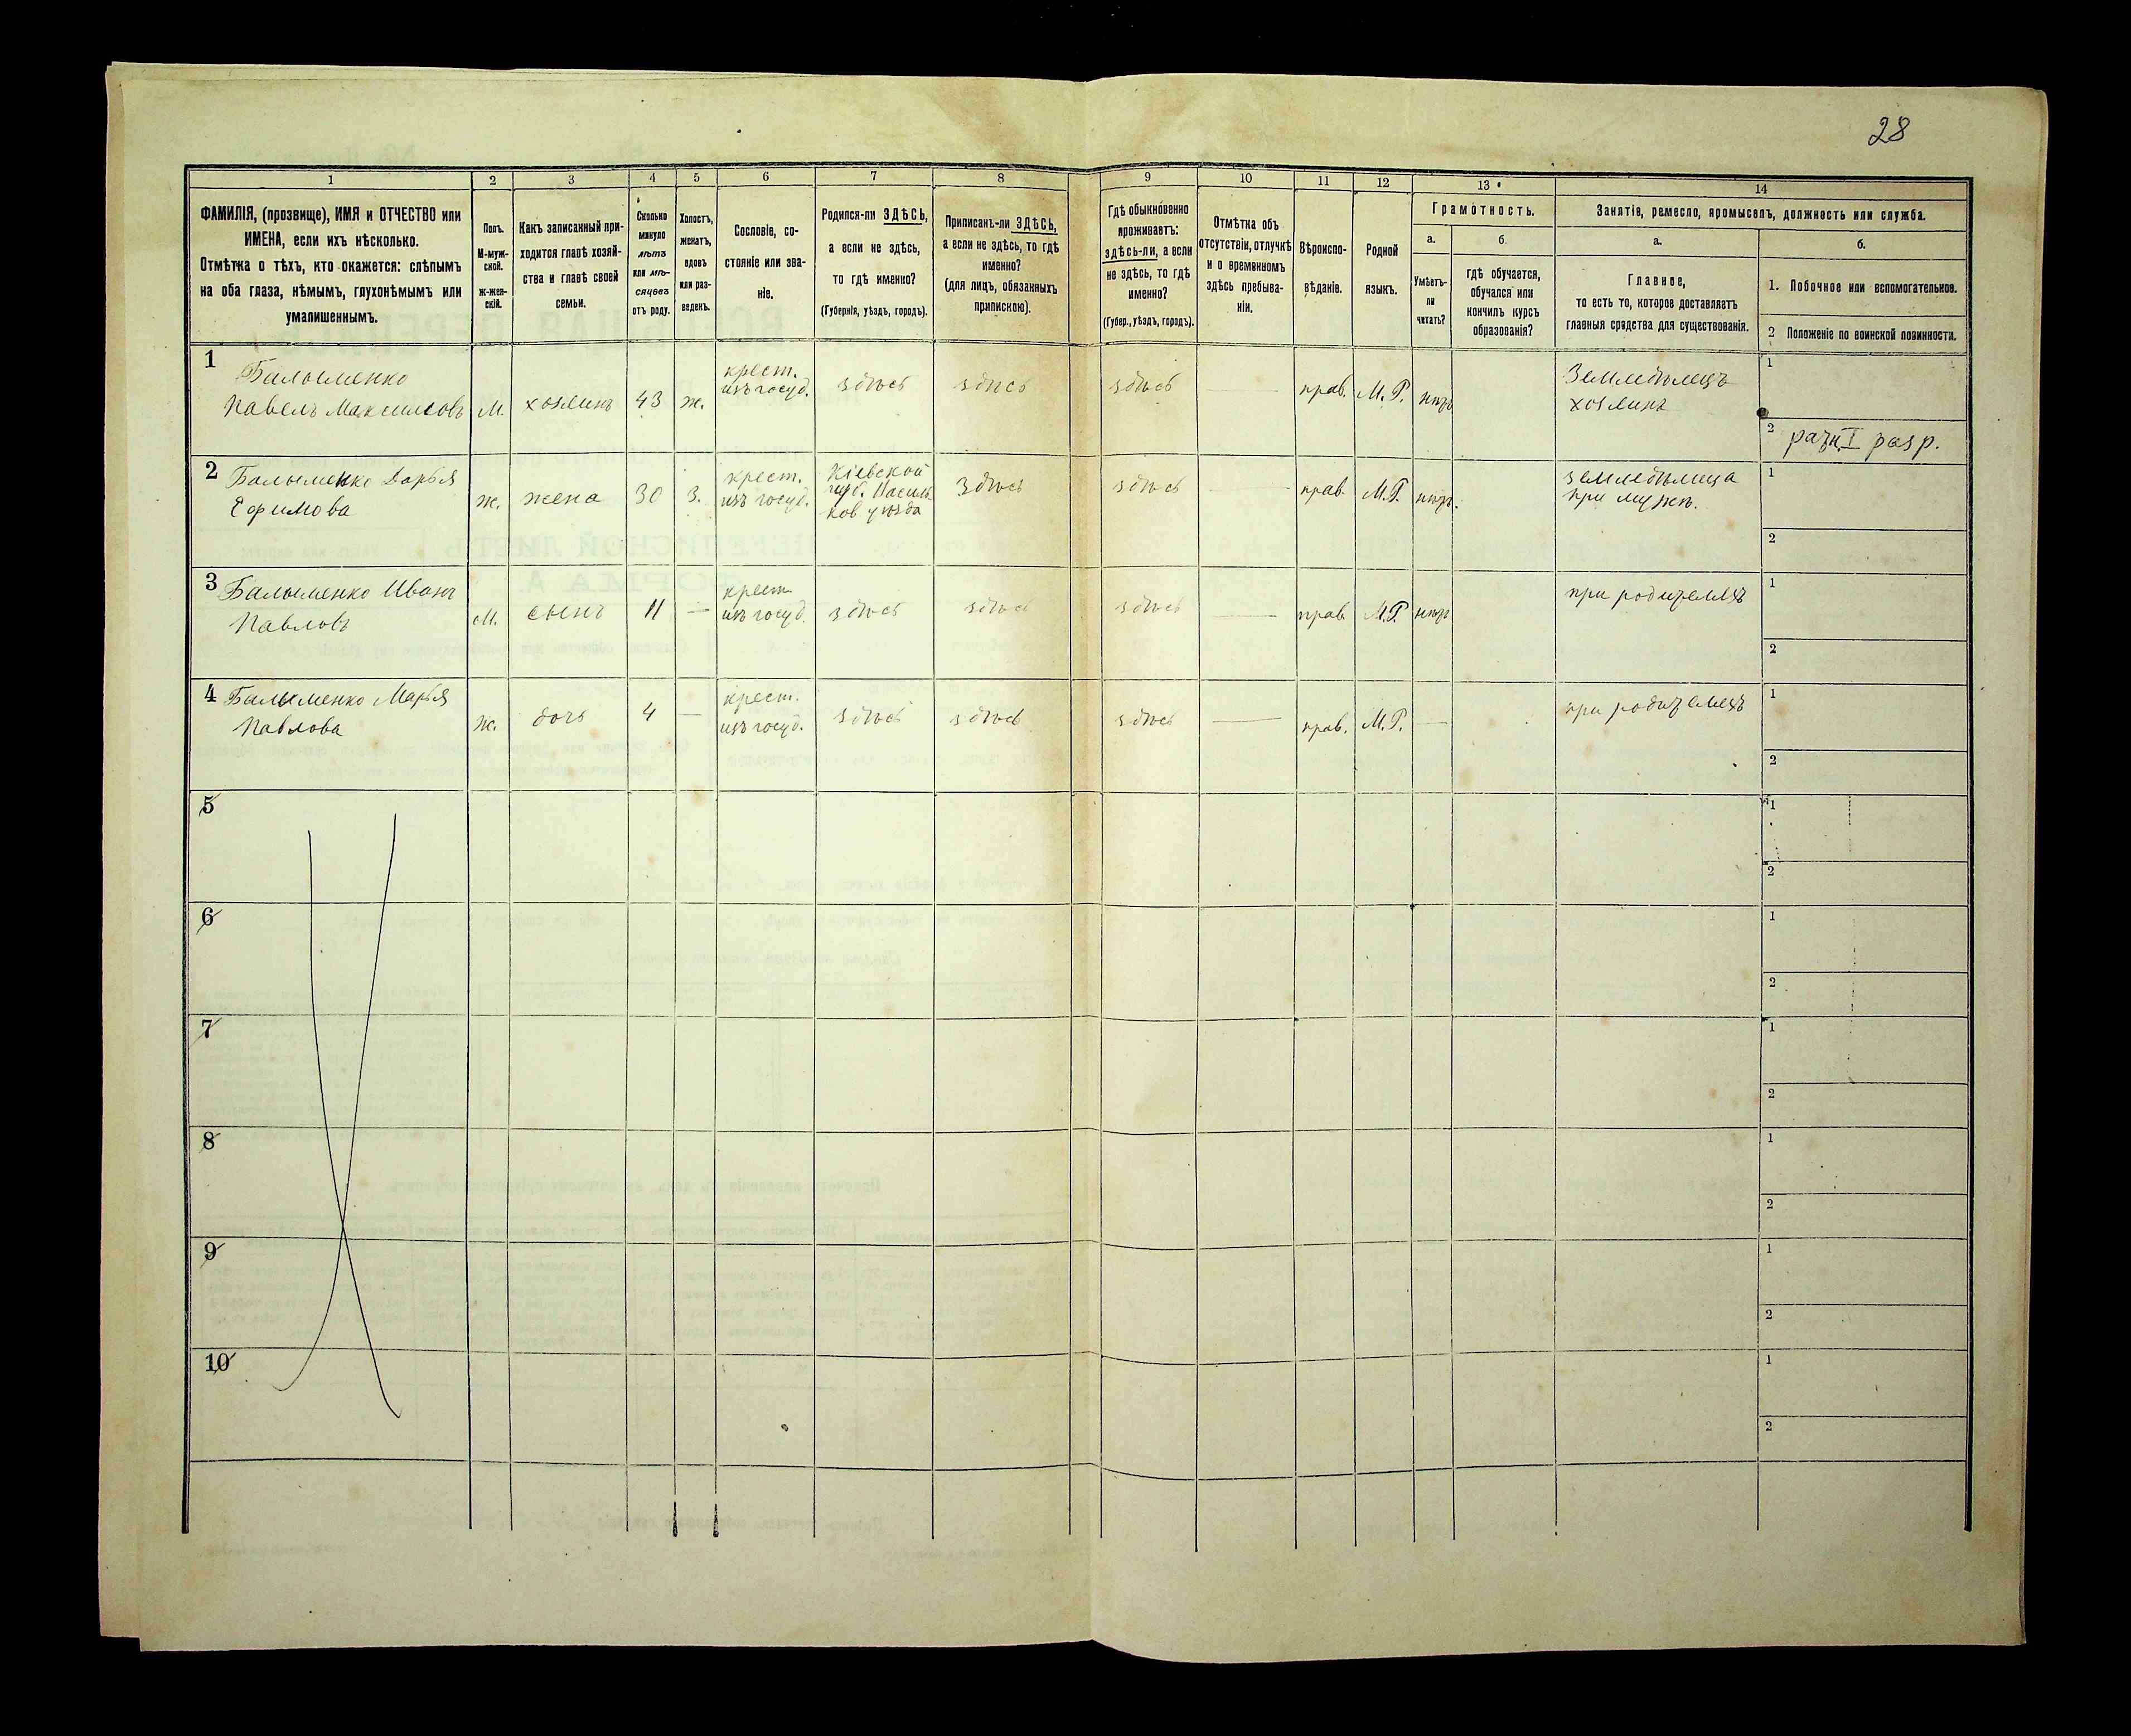 28
1
2
3
4
5
6
7
8
9
10
11
12
13
14
ФАМИЛІЯ, (прозвище), ИМЯ и ОТЧЕСТВО или
ИМЕНА, если ихъ нѣсколько.
Отмѣтка о тѣхъ, кто окажется: слѣпымъ
на оба глаза, нѣмымъ, глухонѣмымъ или
умалишеннымъ.
Полъ.
М-муж-
ской.
ж-жен-
скій.
Какъ записанный при-
ходится главѣ хозяй-
ства и главѣ своей
семьи.
Сколько
минуло
лѣтъ
или мѣ-
сяцевъ
отъ роду.
Холостъ,
женатъ,
вдовъ
или раз-
веденъ.
Сословіе, со-
стояніе или зва-
ніе.
Родился-ли ЗДѢСЬ,
а если не здѣсь,
то гдѣ именно?
(Губернія, уѣздъ, городъ).
Приписанъ-ли ЗДѢСЬ,
а если не здѣсь, то гдѣ
именно?
(для лицъ, обязанныхъ
припискою).
Гдѣ обыкновенно
проживаетъ:
здѣсь-ли, а если
не здѣсь, то гдѣ
именно?
(Губер., уѣздъ, городъ).
Отмѣтка объ
отсутствіи, отлучкѣ
и о временномъ
здѣсь пребыва-
ніи.
Вѣроиспо-
вѣданіе.
Родной
языкъ.
Грамотность.
а.
Умѣетъ-
ли
читать?
б.
гдѣ обучается,
обучался или
кончилъ курсъ
образованія?
Занятіе, ремесло, промыселъ, должность или служба.
а.
Главное,
то есть то, которое доставляетъ
главныя средства для существованія.
б.
1. Побочное или вспомогательное.
2 Положеніе по воинской повинности.
1
Балыменко
Павелъ Максимовъ
м.
хозяинъ
43
ж.
крест.
изъ госуд.
здѣсь
здѣсь
здѣсь
—
прав.
М. Р.
нѣтъ
Земледѣлецъ
хозяинъ
1
2 ратн. I разр.
2 Балыменко Дарья
Ефимова
ж.
жена
30
з.
крест.
изъ госуд.
Кіевской
губ. Василь
ков уѣзда
Здѣсь
здѣсь
—
прав.
М.Р.
нѣтъ.
земледѣлица
при мужѣ.
1
2
3 Балыменко Иванъ
Павловъ
м.
сынъ
11
—
крест.
изъ госуд.
здѣсь
здѣсь
здѣсь
—
прав.
М.Р.
нѣтъ
при родителяхъ
1
2
4 Балыменко Марья
Павлова
ж.
дочь
4
—
крест.
изъ госуд.
здѣсь
здѣсь
здѣсь
—
прав.
М.Р.
—
при родителяхъ
1
2
5
1
2
6
1
2
7
1
2
8
1
2
9
1
2
10
1
2